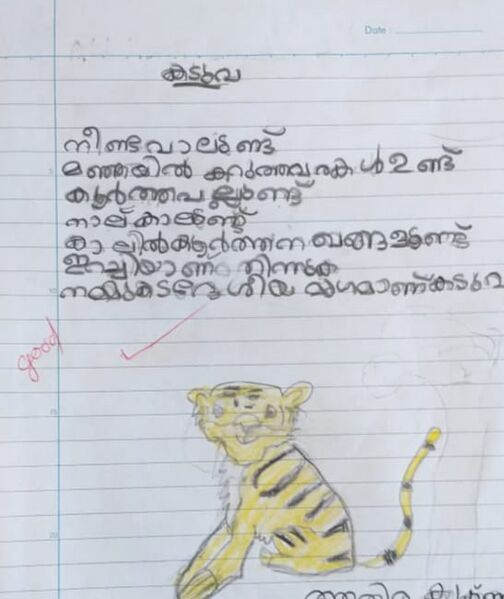 Date :
കടുവ
നീണ്ടവാലുണ്ട്
മഞ്ഞയിൽ കറുത്തവരകൾഉണ്ട്
കൂർത്തപല്ലുണ്ട്
നാല്കാലുണ്ട്
കാലിൽകൂർത്തനഖങ്ങളുണ്ട്
ഇറച്ചിയാണ് തിന്നുക
നമ്മുടെദേശീയ മൃഗമാണ്കടുവ
good